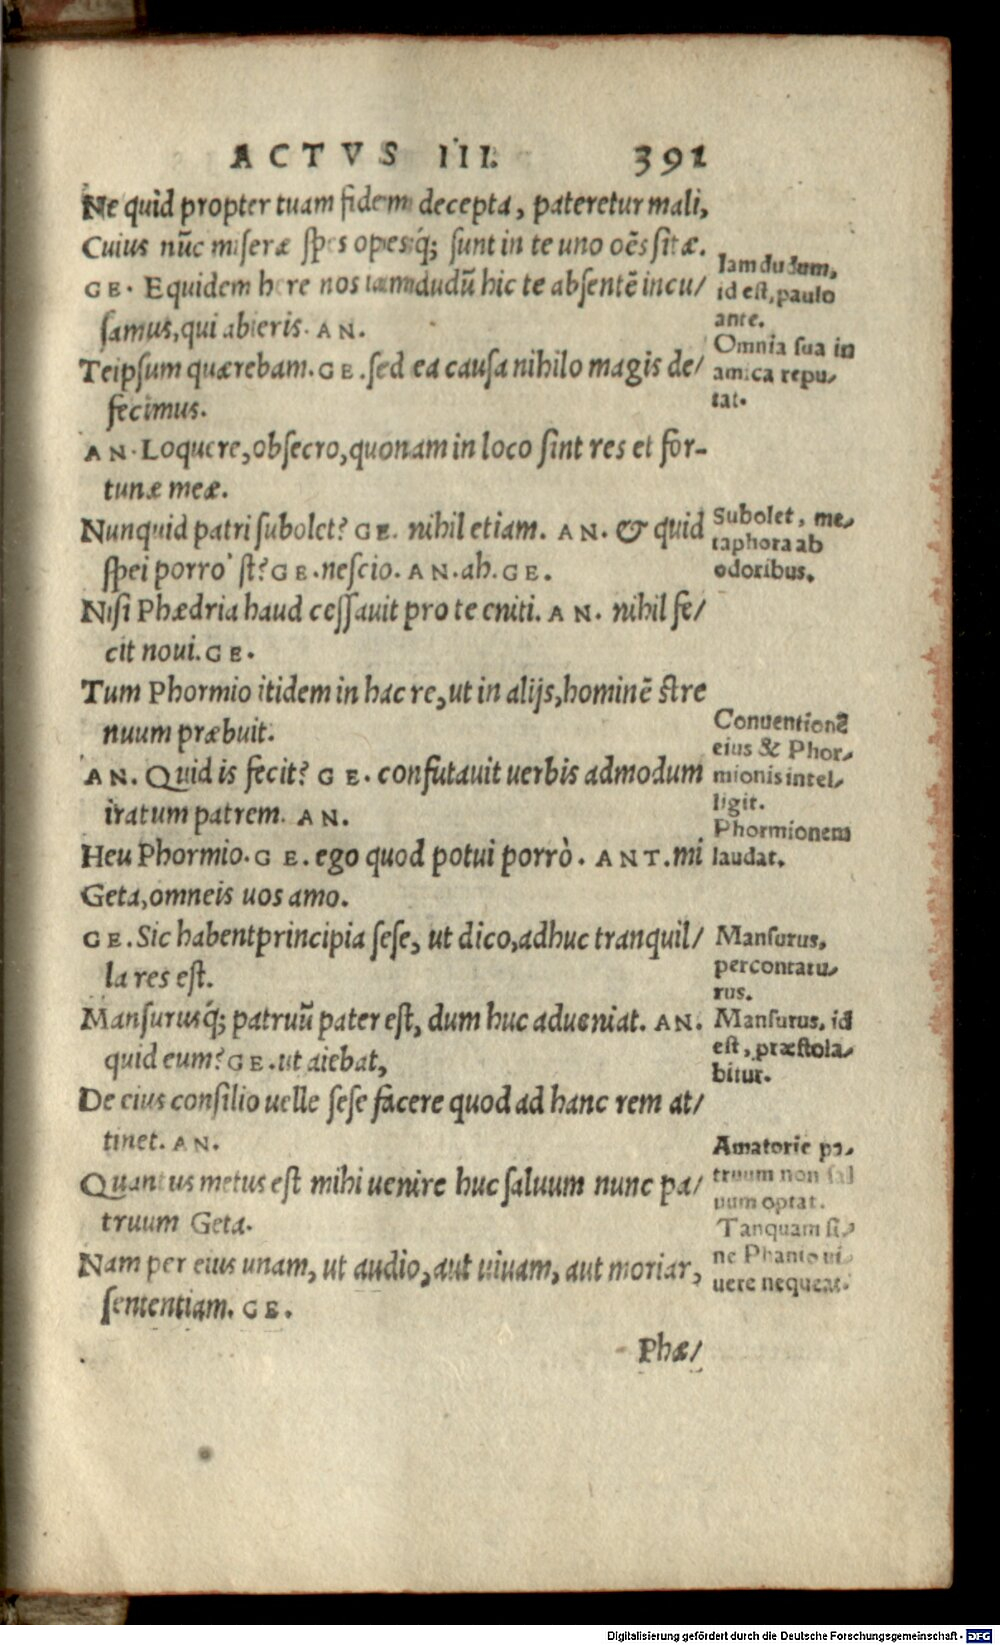 ACTVS III. 391
Ne quid propter tuam fidem decepta, pateretur mali,
Cuius nūc miseræ spes opesq́; sunt in te uno oēs sitæ.
GE. Equidem here nos iamdudū hic te absentē incu/
samus, qui abieris. AN.
Teipsum quærebam. GE. sed ea causa nihilo magis de/
fecimus.
AN. Loquere, obsecro, quonam in loco sint res et for-
tunæ meæ.
Nunquid patri subolet? GE. nihil etiam. AN. & quid
spei porro' st? GE. nescio. AN. ah. GE.
Nisi Phædria haud cessauit pro te eniti. AN. nihil fe/
cit noui. GE.
Tum Phormio itidem in hac re, ut in alijs, hominē stre
nuum præbuit.
AN. Quid is fecit? GE. confutauit uerbis admodum
iratum patrem. AN.
Heu Phormio. GE. ego quod potui porrò. ANT. mi
Geta, omneis uos amo.
GE. Sic habent principia sese, ut dico, adhuc tranquil/
la res est.
Mansurusq́; patruū pater est, dum huc adueniat. AN.
quid eum? GE. ut aiebat,
De eius consilio uelle sese facere quod ad hanc rem at/
tinet. AN.
Quantus metus est mihi uenire huc saluum nunc pa/
truum Geta.
Nam per eius unam, ut audio, aut uiuam, aut moriar,
sententiam. GE.
Phæ/
Iamdudum,
id est, paulo
ante.
Omnia sua in
amica repu-
tat.
Subolet, me-
taphora ab
odoribus.
Conuentionē
eius & Phor-
mionis intel-
ligit.
Phormionem
laudat.
Mansurus,
percontatu-
rus.
Mansurus, id
est, præstola-
bitur.
Amatorie pa-
truum non sal
uum optat.
Tanquam si-
ne Phanio ui-
uere nequeat.
Digitalisierung gefördert durch die Deutsche Forschungsgemeinschaft - DFG